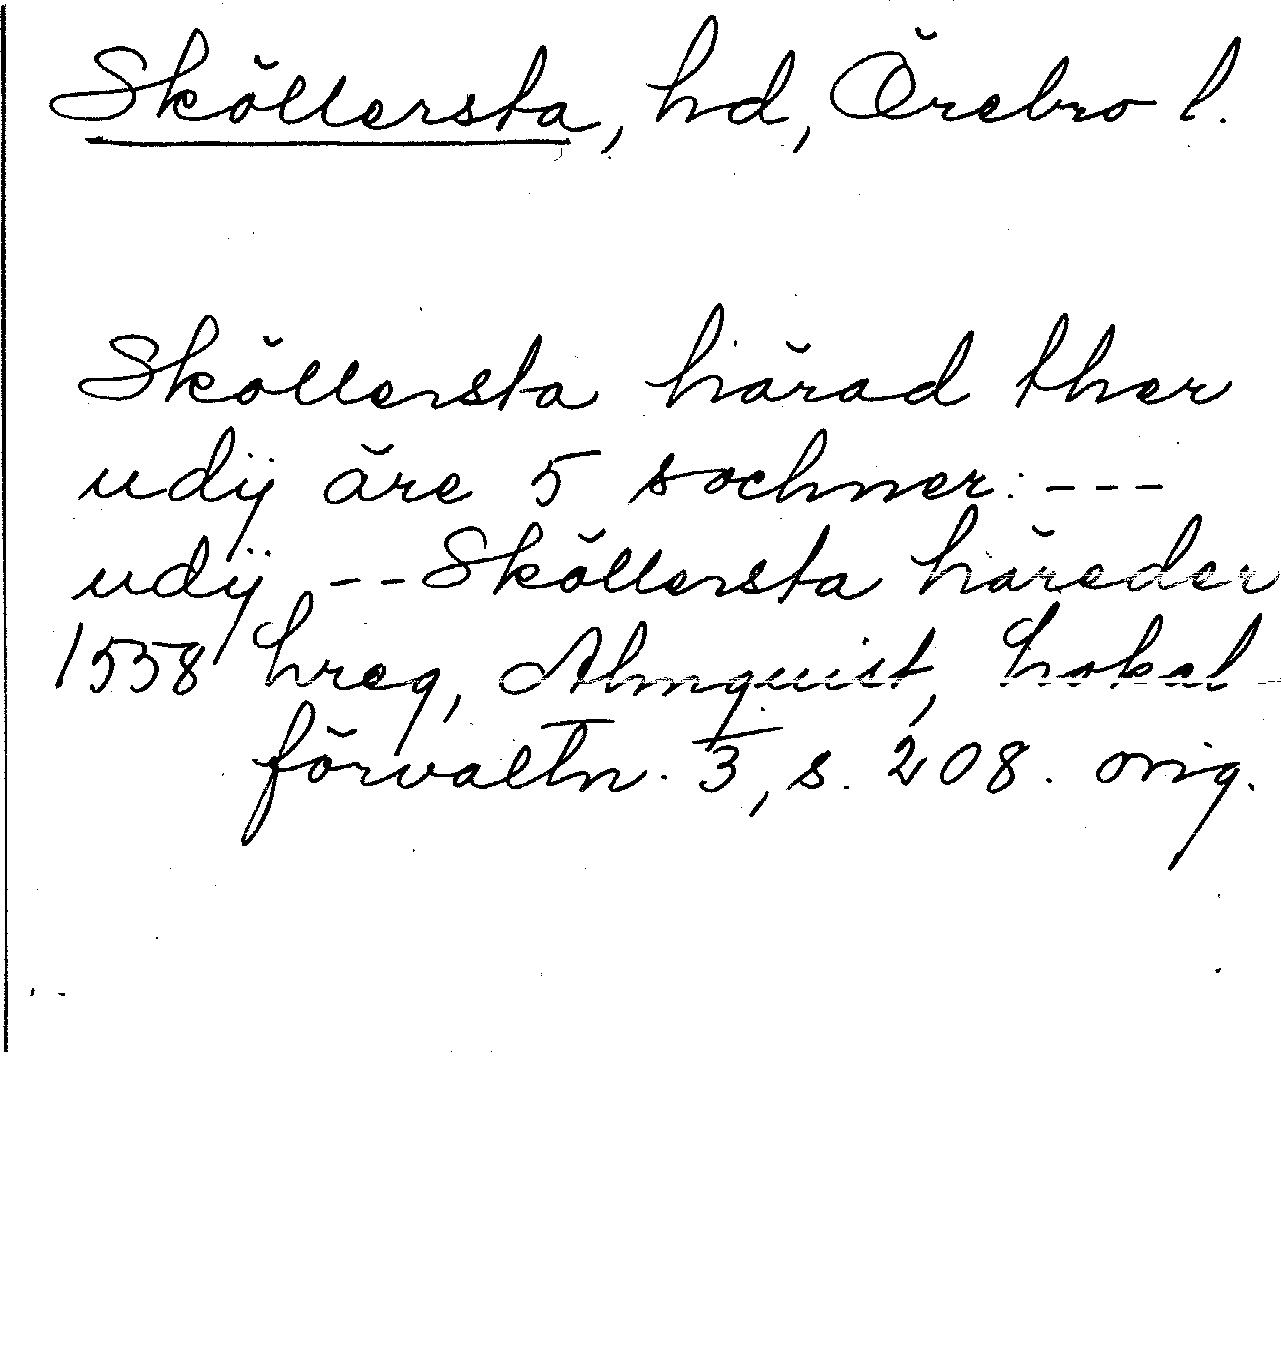 Sköllersta, hd, Örebro l.
Sköllersta härad ther
udÿ äre 5 sochner: ---
udÿ -- Sköllersta häreder
1558 hreg, Almquist, Lokal-
förvaltn. 3, s. 208. orig.